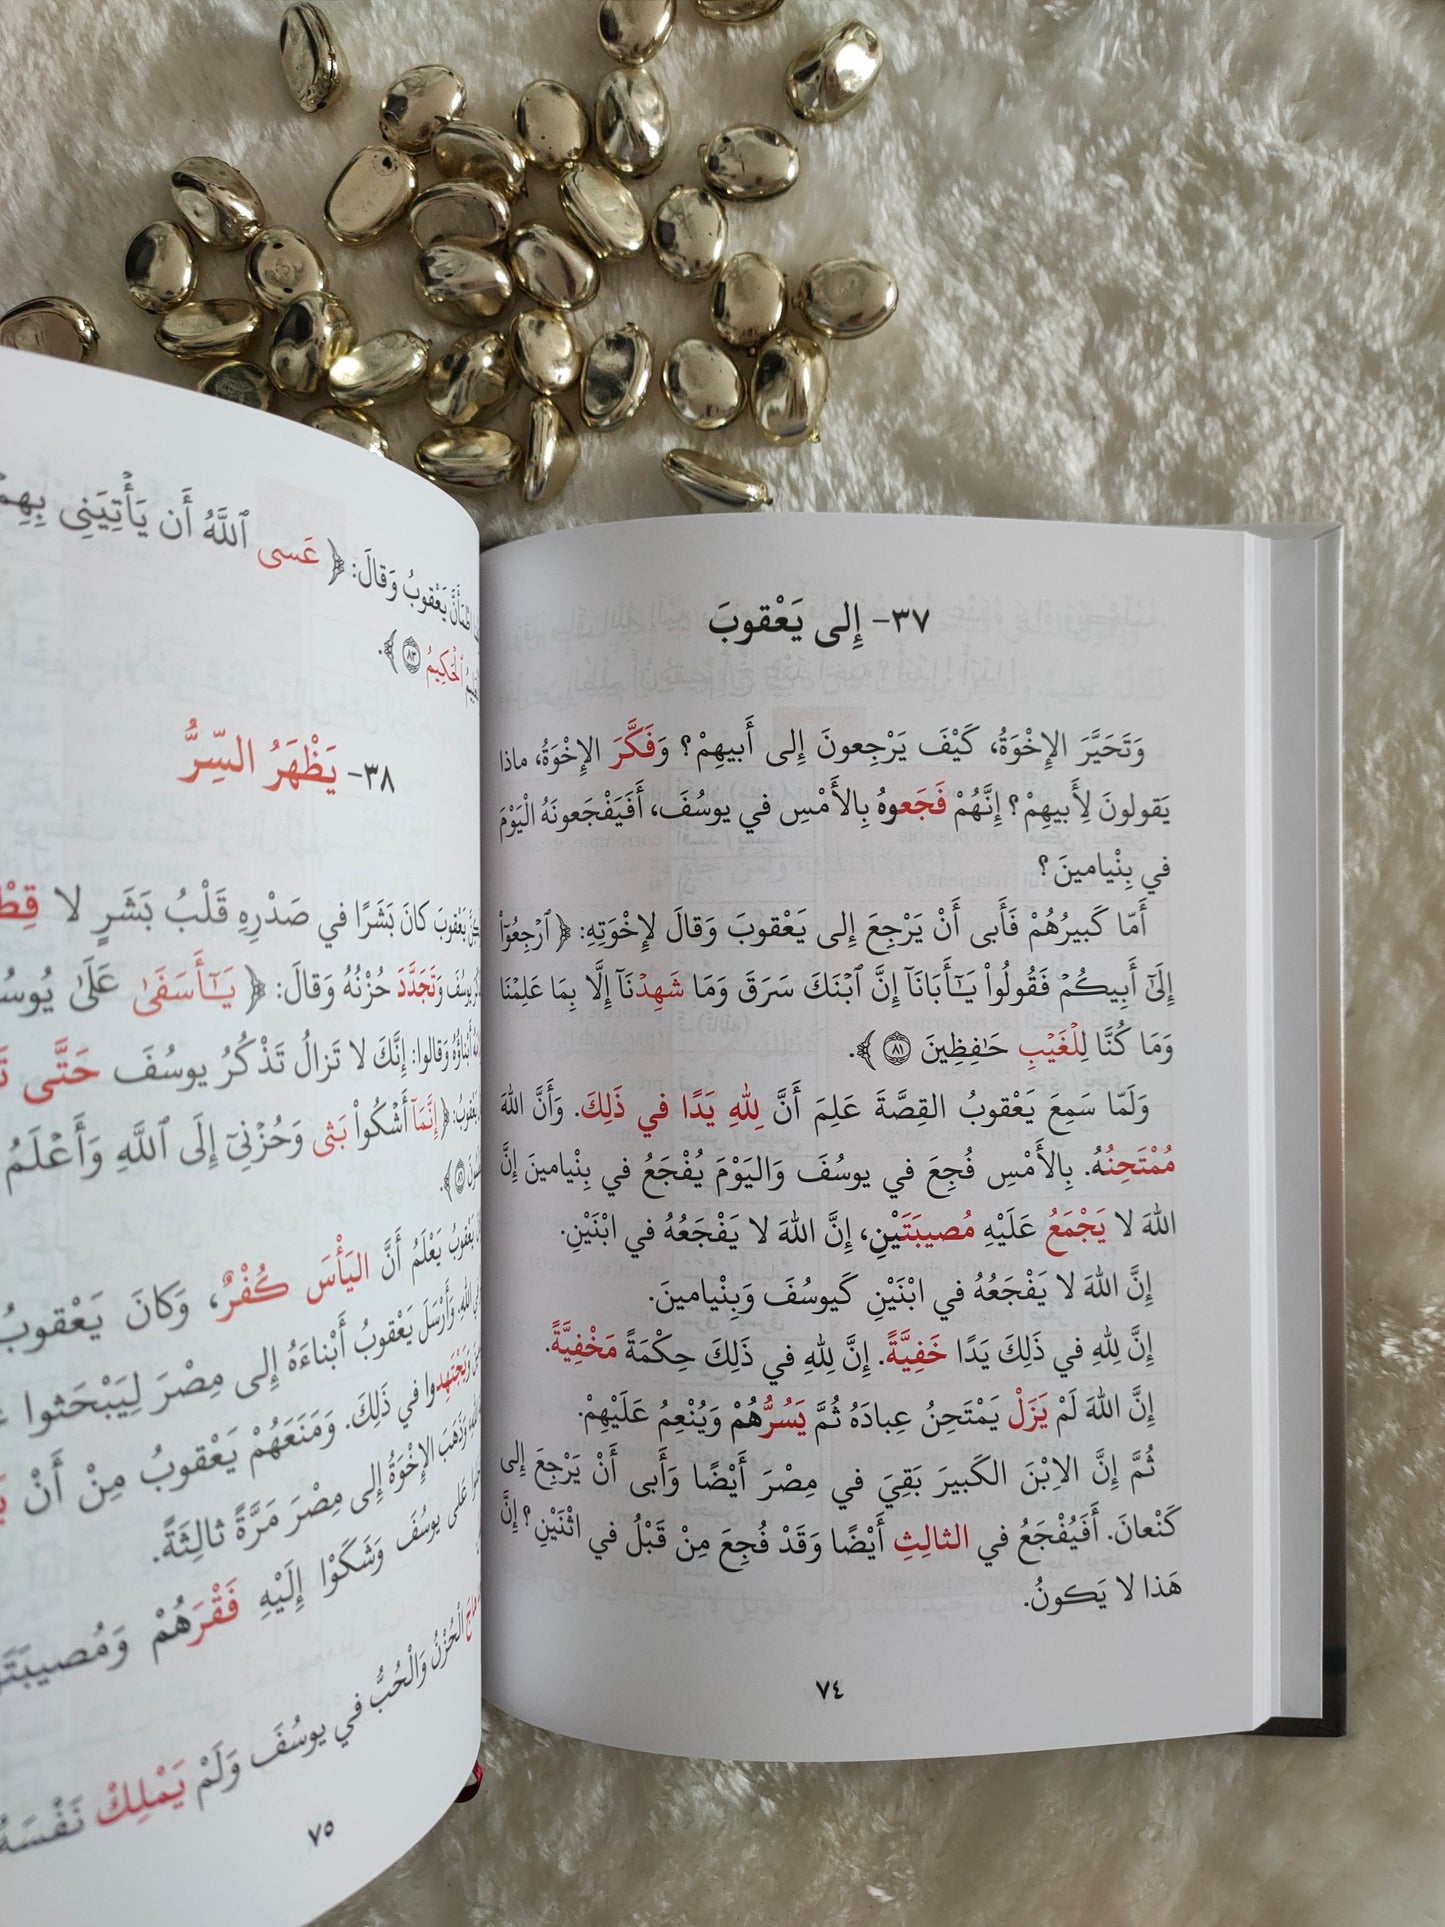 ٣٧- إِلى يَعْقوبَ
وَتَحَيَّرَ الإِخْوَةُ، كَيْفَ يَرْجِعونَ إِلى أَبيهِمْ؟ وَفَكَّرَ الإِخْوَةُ، ماذا
يَقولونَ لِأَبيهِمْ؟ إِنَّهُمْ فَجَعوهُ بِالأَمْسِ في يوسُفَ، أَفَيَفْجَعونَهُ الْيَوْمَ
في بِنْيامينَ؟
أَمّا كَبيرُهُمْ فَأَبى أَنْ يَرْجِعَ إِلى يَعْقوبَ وَقالَ لِإِخْوَتِهِ: ﴿ ٱرْجِعُوٓا۟
إِلَىٰٓ أَبِيكُمْ فَقُولُوا۟ يَـٰٓأَبَانَآ إِنَّ ٱبْنَكَ سَرَقَ وَمَا شَهِدْنَآ إِلَّا بِمَا عَلِمْنَا
وَمَا كُنَّا لِلْغَيْبِ حَـٰفِظِينَ ٨١ ﴾.
وَلَمّا سَمِعَ يَعْقوبُ القِصَّةَ عَلِمَ أَنَّ لِلهِ يَدًا في ذَلِكَ. وَأَنَّ اللهَ
مُمْتَحِنُهُ. بِالأَمْسِ فُجِعَ في يوسُفَ وَاليَوْمَ يُفْجَعُ في بِنْيامينَ إِنَّ
اللهَ لا يَجْمَعُ عَلَيْهِ مُصيبَتَيْنِ، إِنَّ اللهَ لا يَفْجَعُهُ في ابْنَيْنِ.
إِنَّ اللهَ لا يَفْجَعُهُ في ابْنَيْنِ كَيوسُفَ وَبِنْيامينَ.
إِنَّ لِلهِ في ذَلِكَ يَدًا خَفِيَّةً. إِنَّ لِلهِ في ذَلِكَ حِكْمَةً مَخْفِيَّةً.
إِنَّ اللهَ لَمْ يَزَلْ يَمْتَحِنُ عِبادَهُ ثُمَّ يَسُرُّهُمْ وَيُنْعِمُ عَلَيْهِمْ.
ثُمَّ إِنَّ الاِبْنَ الكَبيرَ بَقِيَ في مِصْرَ أَيْضًا وَأَبى أَنْ يَرْجِعَ إِلى
كَنْعانَ. أَفَيُفْجَعُ في الثالِثِ أَيْضًا وَقَدْ فُجِعَ مِنْ قَبْلُ في اثْنَيْنِ؟ إِنَّ
هَذا لا يَكونُ.
٧٤
يَعْقوبُ وَقالَ: ﴿ عَسى ٱللَّهُ أَن يَأْتِيَنِى بِهِمْ
ٱلْحَكِيمُ ٨٣ ﴾.
٣٨- يَظْهَرُ السِّرُّ
يَعْقوبَ كانَ بَشَرًا في صَدْرِهِ قَلْبُ بَشَرٍ لا
يوسُفَ وَتَجَدَّدَ حُزْنُهُ وَقالَ: ﴿ يَـٰٓأَسَفَىٰ عَلَىٰ
أَبْناؤُهُ وَقالوا: إِنَّكَ لا تَزالُ تَذْكُرُ يوسُفَ حَتَّى
﴿ إِنَّمَآ أَشْكُوا۟ بَثِّى وَحُزْنِىٓ إِلَى ٱللَّهِ وَأَعْلَمُ
٨٦ ﴾.
يَعْقوبُ يَعْلَمُ أَنَّ اليَأْسَ كُفْرٌ، وَكانَ يَعْقوبُ
وَأَرْسَلَ يَعْقوبُ أَبْناءَهُ إِلى مِصْرَ لِيَبْحَثوا
وَيَجْتَهِدوا في ذَلِكَ. وَمَنَعَهُمْ يَعْقوبُ مِنْ أَنْ
وَذَهَبَ الإِخْوَةُ إِلى مِصْرَ مَرَّةً ثالِثَةً.
عَلى يوسُفَ وَشَكَوْا إِلَيْهِ فَقْرَهُمْ
الْحُزْنُ وَالْحُبُّ في يوسُفَ وَلَمْ يَمْلِكْ نَفْسَهُ
٧٥